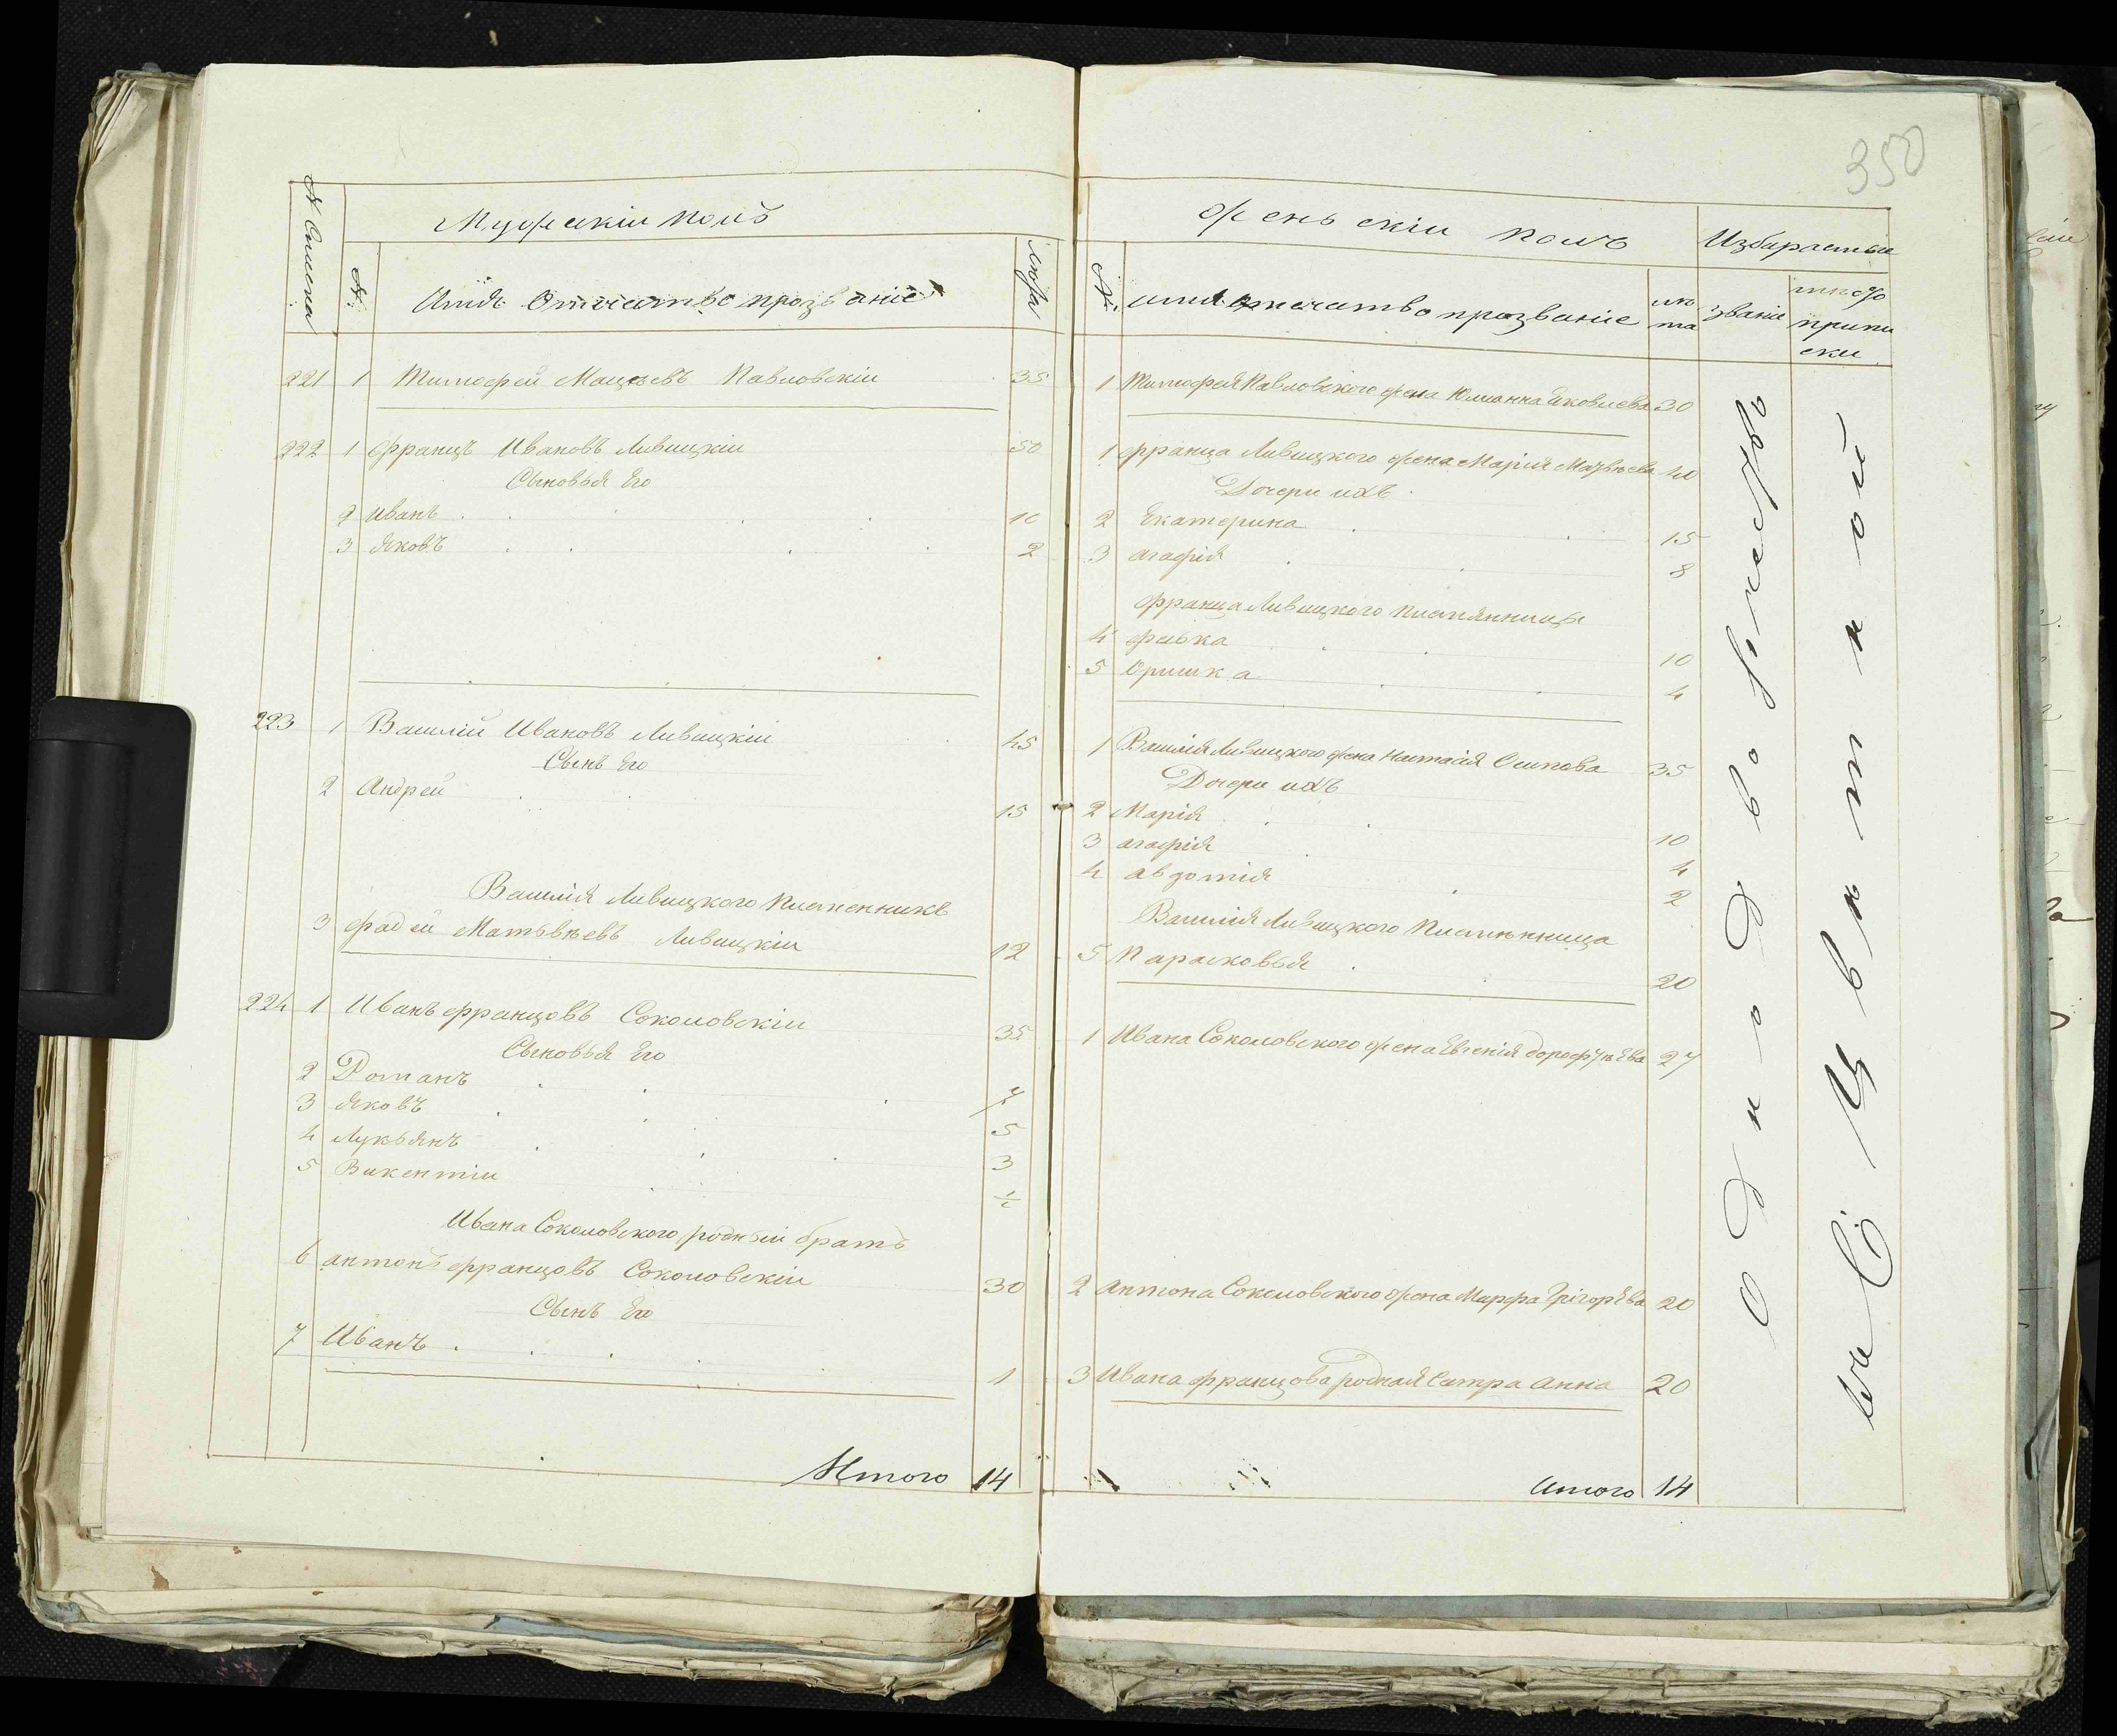 350
№ Списка
Мужескій полъ
№
Имя Отчество прозваніе
лѣта
221 1 Тимофей Мацѣевъ Павловскій 35
222 1 Францъ Ивановъ Ливицкій 50
Сыновья Его
2 Иванъ 10
3 Яковъ 2
223 1 Василій Ивановъ Ливицкій 45
Сынъ Его
2 Андрей 15
Василія Ливицкого племенникъ
3 фадей Матьвѣевъ Ливицкій 12
224 1 Иванъ францовъ Соколовскій 35
Сыновья Его
2 Романъ 7
3 Яковъ 5
4 Лукьянъ 3
5 Викентій ½
Ивана Соколовского родный братъ
6 антонъ францовъ Соколовскій 30
Сынъ Его
7 Иванъ 1
Итого 14
Женьскій полъ
Избираемые
№
имя отечество прозваніе
лѣта
званіе
тѣхъ
припи
ски
1 Тимофея Павловского жена Юлианна Яковлева 30
1 франца Ливицкого жена Марія Матвѣева 40
Дочери ихъ
2 Екатерина 15
3 агафія 8
франца Ливицкого племянницы
4 февка 10
5 Оришка 4
1 Василія Ливицкого жена Настасія Осипова 35
Дочери ихъ
2 Марія 10
3 агафія 4
4 авдотія 2
Василія Ливицкого племянница
5 Парасковья 20
1 Ивана Соколовского жена Евгенія дорофѣева 27
2 Антона Соколовского жена Марфа Грігорѣва 20
3 Ивана францова родная Сестра Анна 20
итого 14
Однодворчество